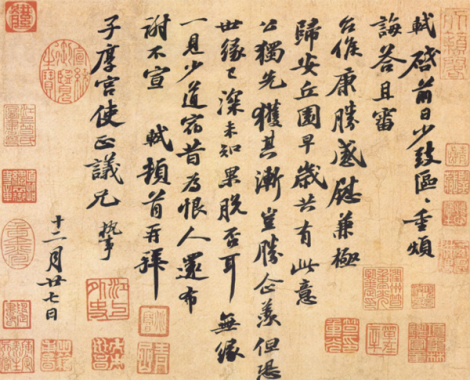 軾啓前日少致區區重煩
誨荅且審
台候康勝感慰兼極
歸安丘園早歲共有此意
公獨先獲其漸豈勝企羨但恐
世緣已深未知果脫否耳無緣
一見少道宿昔為恨人還布
謝不宣軾頓首再拜
子厚宮使正議兄執事
十二月廿七日